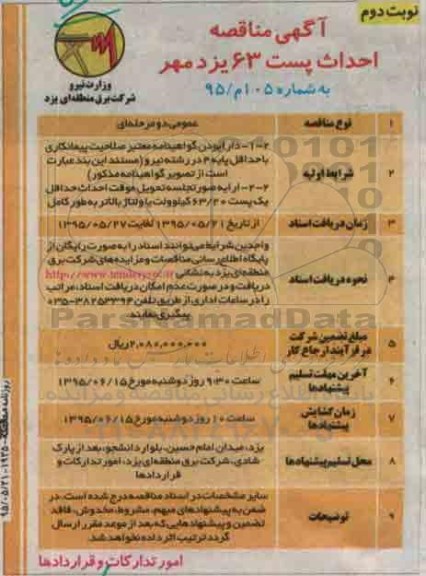 نوبت دوم
آگهی مناقصه
احداث پست ۶۳ یزد مهر
به شماره ۱۰۵م/۹۵
وزارت نیرو
شرکت برق منطقه‌ای یزد
۱ نوع مناقصه عمومی دو مرحله‌ای
۲ شرایط اولیه
۲-۱- دارا بودن گواهینامه معتبر صلاحیت پیمانکاری
با حداقل پایه ۴ در رشته نیرو (مستند این بند عبارت
است از تصویر گواهینامه مذکور)
۲-۲- ارایه صورتجلسه تحویل موقت احداث حداقل
یک پست ۶۳/۲۰ کیلوولت یا ولتاژ بالاتر به طور کامل
۳ زمان دریافت اسناد از تاریخ ۱۳۹۵/۰۵/۲۱ لغایت ۱۳۹۵/۰۵/۲۷
۴ نحوه دریافت اسناد
واجدین شرایط می‌توانند اسناد را به صورت رایگان از
پایگاه اطلاع رسانی مناقصات و مزایده‌های شرکت برق
منطقه‌ای یزد به نشانی
دریافت و در صورت عدم امکان دریافت اسناد، مراتب
را در ساعات اداری از طریق تلفن ۳۸۲۵۳۳۹۴-۰۳۵
پیگیری نمایند
۵ مبلغ تضمین شرکت
در فرآیند ارجاع کار
۲,۰۸۰,۰۰۰,۰۰۰ ریال
۶ آخرین مهلت تسلیم
پیشنهادها
ساعت ۹:۳۰ روز دوشنبه مورخ ۱۳۹۵/۰۶/۱۵
۷ زمان گشایش
پیشنهادها
ساعت ۱۰ روز دوشنبه مورخ ۱۳۹۵/۰۶/۱۵
۸ محل تسلیم پیشنهادها
یزد، میدان امام حسین، بلوار دانشجو، بعد از پارک
شادی، شرکت برق منطقه‌ای یزد، امور تدارکات و
قراردادها
۹ توضیحات
سایر مشخصات در اسناد مناقصه درج شده است. در
ضمن به پیشنهادهای مبهم، مشروط، مخدوش، فاقد
تضمین و پیشنهادهایی که بعد از موعد مقرر ارسال
گردد ترتیب اثر داده نخواهد شد.
امور تدارکات و قراردادها
ParsNamadData